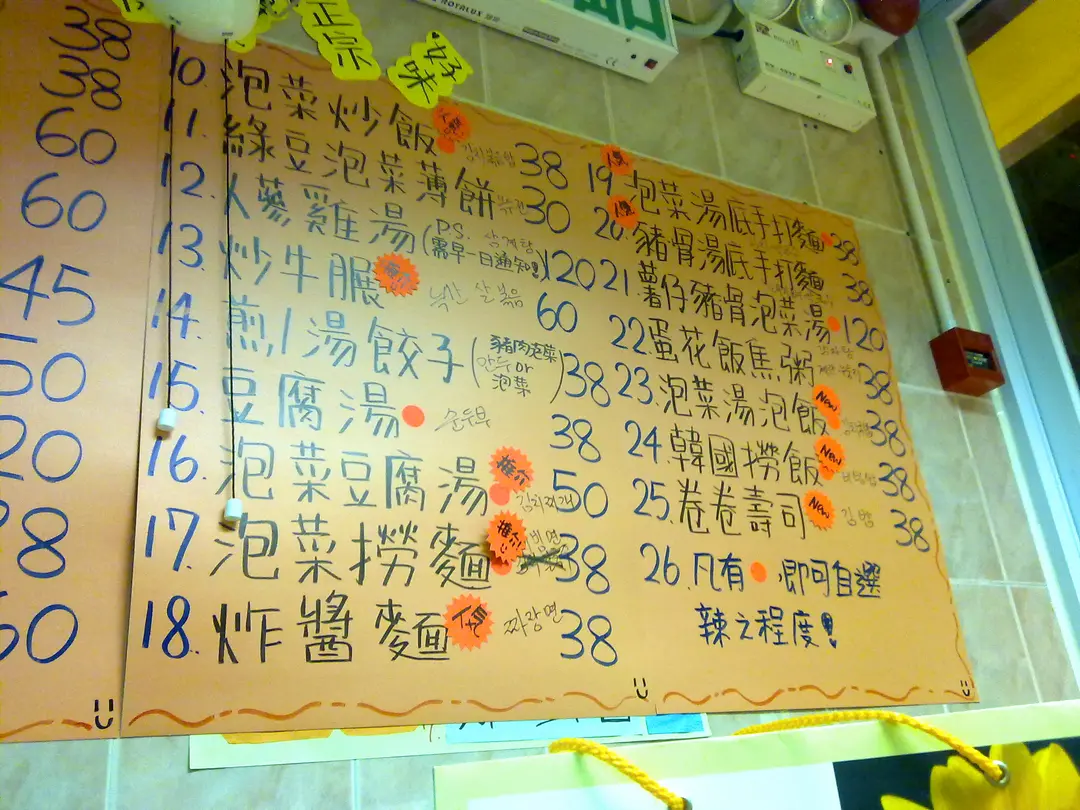 38
38
60
60
45
50
20
8
50
正宗
好味
10. 泡菜炒飯 人氣 38
11. 綠豆泡菜薄餅 30
12. 人蔘雞湯 (P.S. 需早一日通知!!) 삼계탕 120
13. 炒牛脤 60
14. 煎/湯餃子 (豬肉泡菜 만두 or 泡菜) 38
15. 豆腐湯 순두부 38
16. 泡菜豆腐湯 推介 김치찌개 50
17. 泡菜撈麵 推介 38
18. 炸醬麵 人氣 짜장면 38
19 泡菜湯底手打麵 38
20. 豬骨湯底手打麵 38
21 薯仔豬骨泡菜湯 120
22. 蛋花飯焦粥 38
23. 泡菜湯泡飯 New 38
24. 韓國撈飯 New 비빔밥 38
25. 卷卷壽司 New 김밥 38
26. 凡有 即可自選
辣之程度!